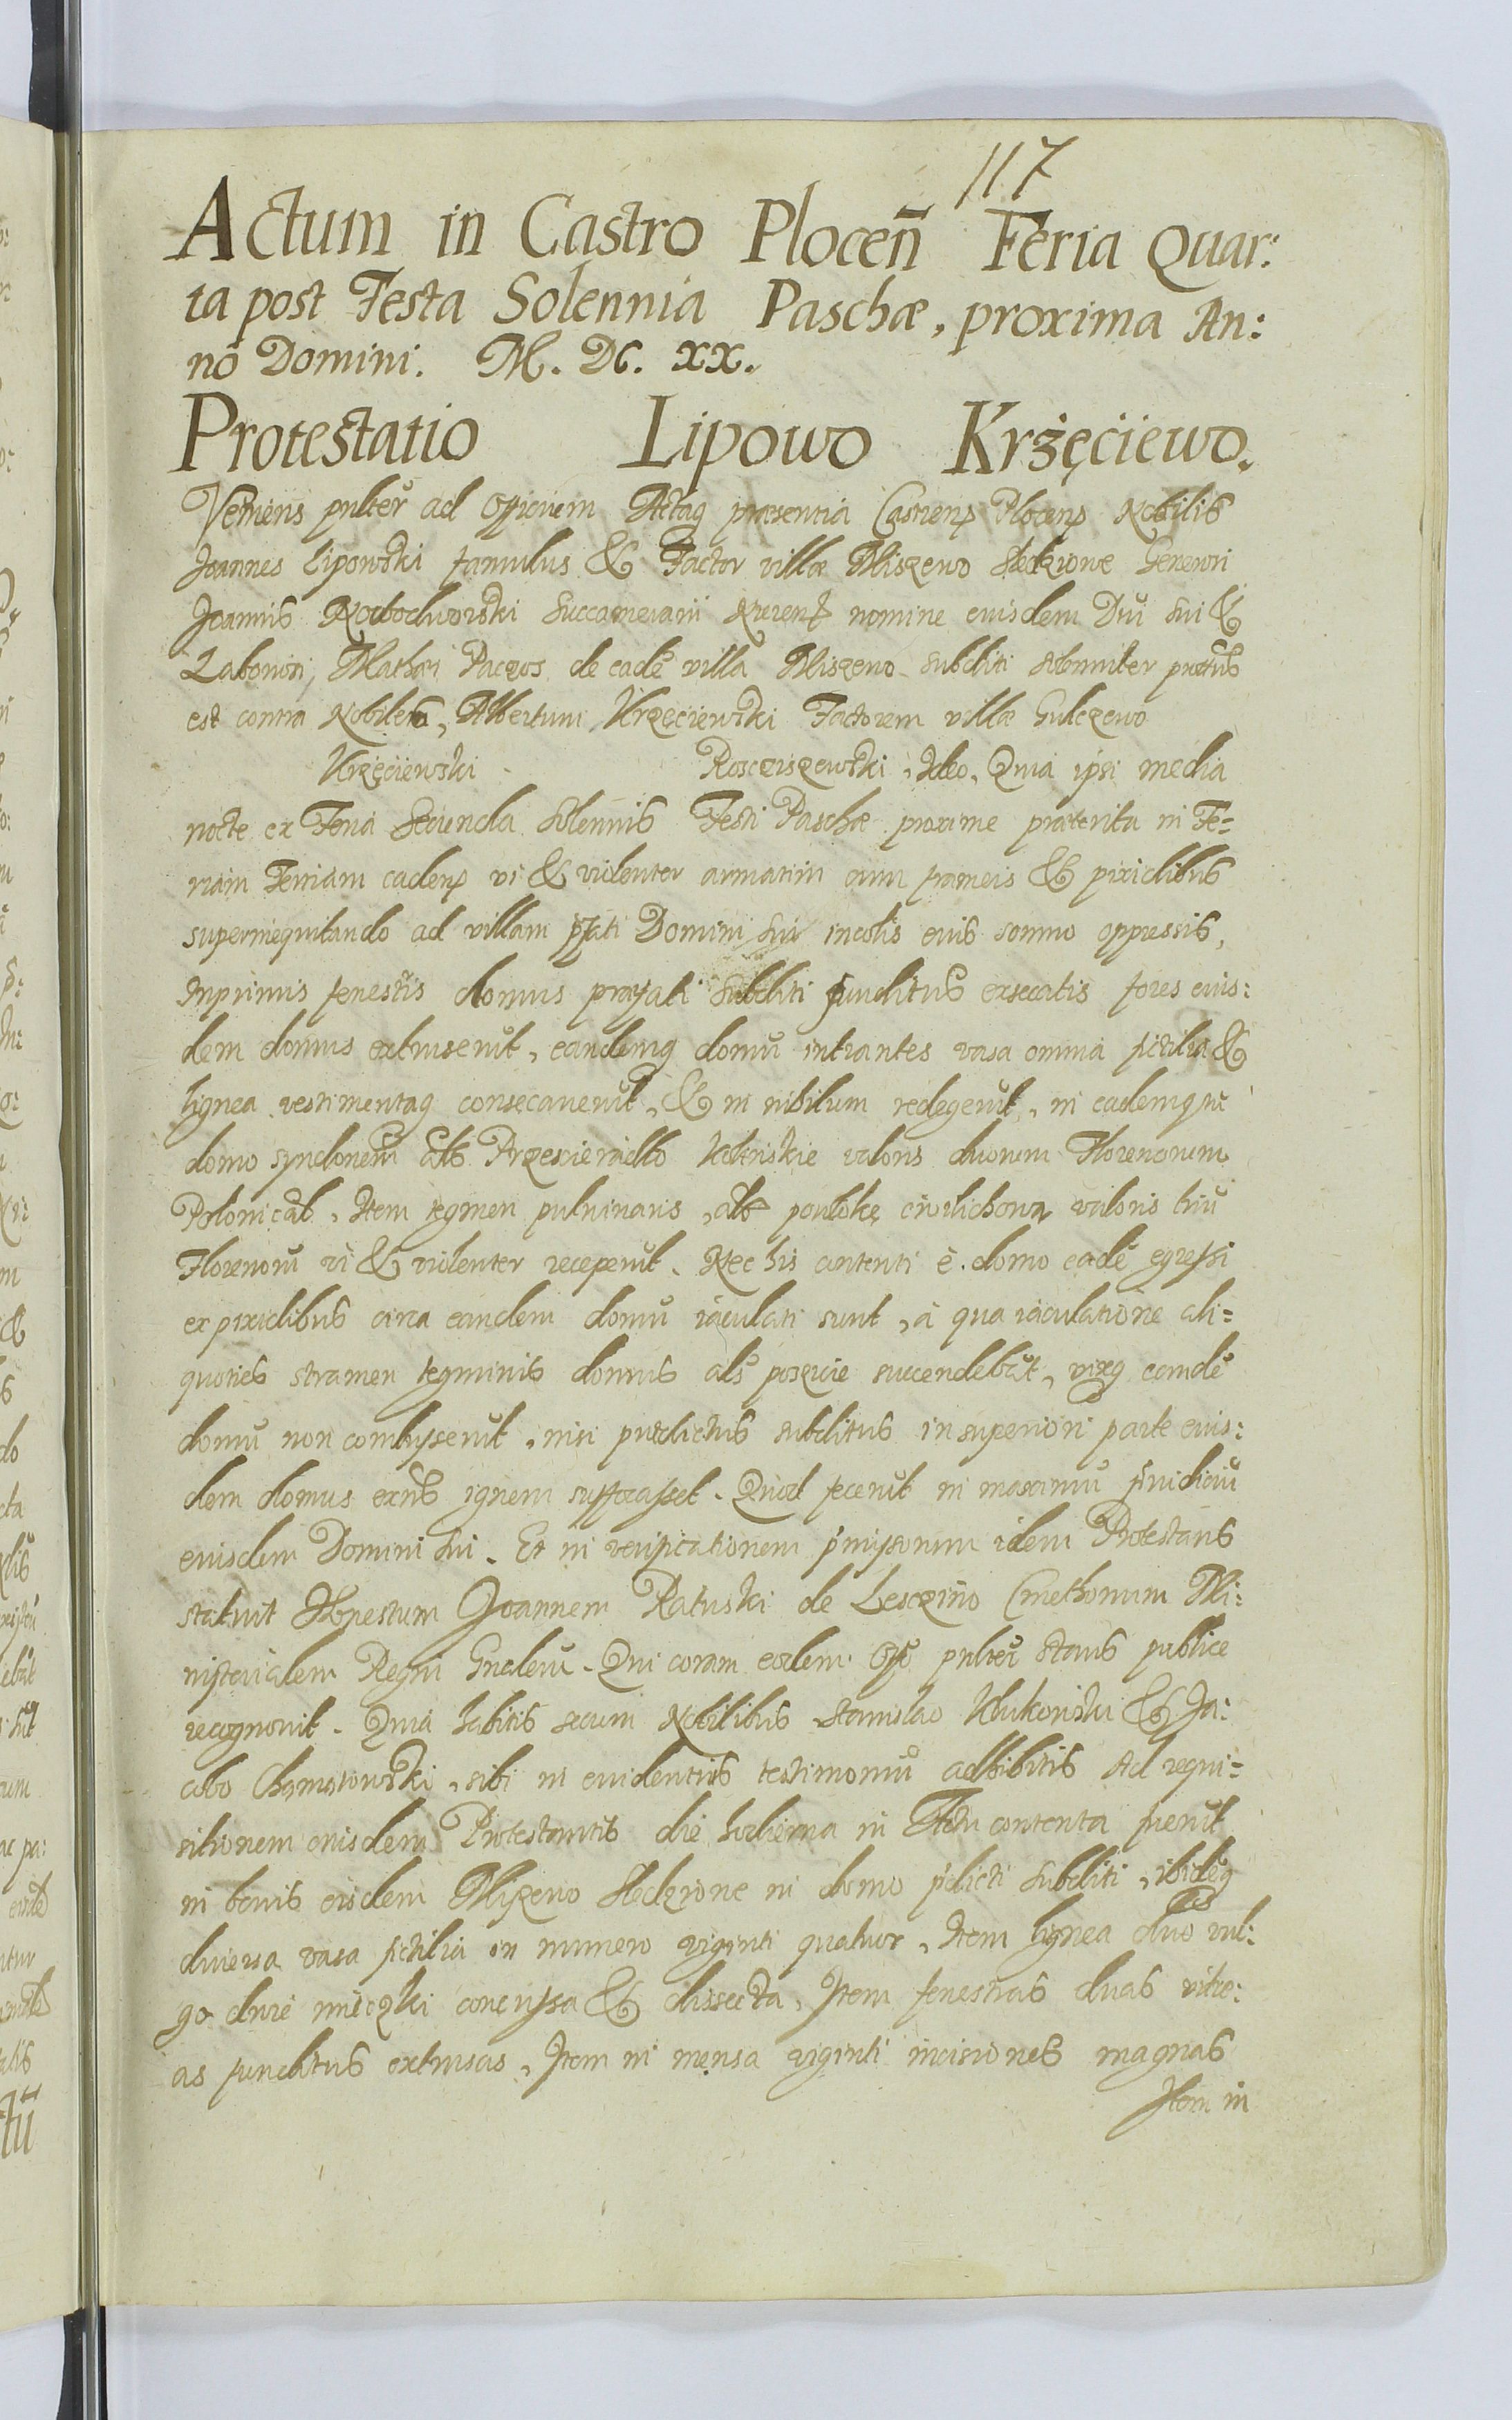 117
Actum in Castro Plocen̄ Feria Quar:
ta post Festa Solennia Paschæ, proxima An:
nō Domini. M. DC. XX.
Protestatio Lipowo Krżęciewo.
Veniens pnlter ad Officium Actaq præsentia Castren Plocen Nobilis
Joannes Lipowski famulus & Factor villæ Miszewo Generosi
Joannis Succamerarii nomine eiusdem Dni sui &
Laboriosi, Mathæi Paczos de eadē villa Miszewo subditi solenniter
est contra Nobiles, Albertum Krzęciewski Factorem villæ Gulczewo
Krzęciewski Rosciszewski, Ideo, Quia ipsi media
nocte ex Feria Secunda solennis Festi Paschæ proxime præterita in Fe=
riam Tertiam caden vi & violenter armatim cum frameis & pixidibus
superinequitando ad villam pfati Domini sui incolis eius somno oppressis,
Inprimis fenestris domus præfati subditi funditus exsecatis fores eius:
dem domus extruserūt, eandemq domū intrantes vasa omnia fictilia &
lignea vestimentaq consecaverūt, & in nihilum redegerūt, in eademq
domo syndonem als valoris duorum Florenorum
Polonical, Item tegmen pulvinaris, als valoris triū
Florenorū vi & violenter receperūt. Nec his contenti è domo eadē egressi
ex pixidibus circa eandem domū iaculati sunt, à qua iaculatione ali=
quoties stramen tegminis domus als poszycie succendebāt, vixq eandē
domū non combusserūt, nisi prædictus subditus in superiori parte eius:
dem domus ignem suffocasset. Quod fecerūt in maximū pñudiciū
eiusdem Domini sui. Et in verificationem pmissorum idem Protestans
statuit Honestum Joannem Ratuski de Lesczino Cmethonum Mi:
nisterialem Regni Gnalem. Qui coram eodem Offo pnlter stans publice
recognovit. Quia habitis secum Nobilibus Stanislao & Ja:
cobo, sibi in evidentius testimoniū adhibitis Ad requi=
sitionem eiusdem Protestantis die hodierna in Actu contenta fuerūt
in bonis eisdem Miszewo in domo pdicti subditi, ibidēq
diversa vasa fictilia in numero viginti quatuor, Item lignea duo vul:
go dwie concussa & dissecta, Item fenestras duas vitre:
as funditus extrusas, Item in mensa viginti incisiones magnas
Item in